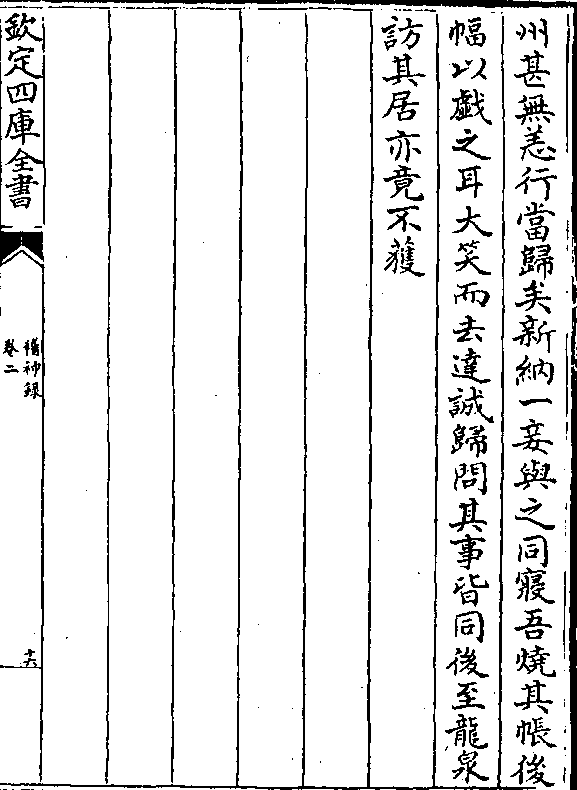 州甚無恙行當歸矣新納一妾與之同寢吾燒其帳後
幅以戲之耳大笑而去達誠歸問其事皆同後至龍泉
訪其居亦竟不獲
欽定四庫全書
稽神録
卷二
十六